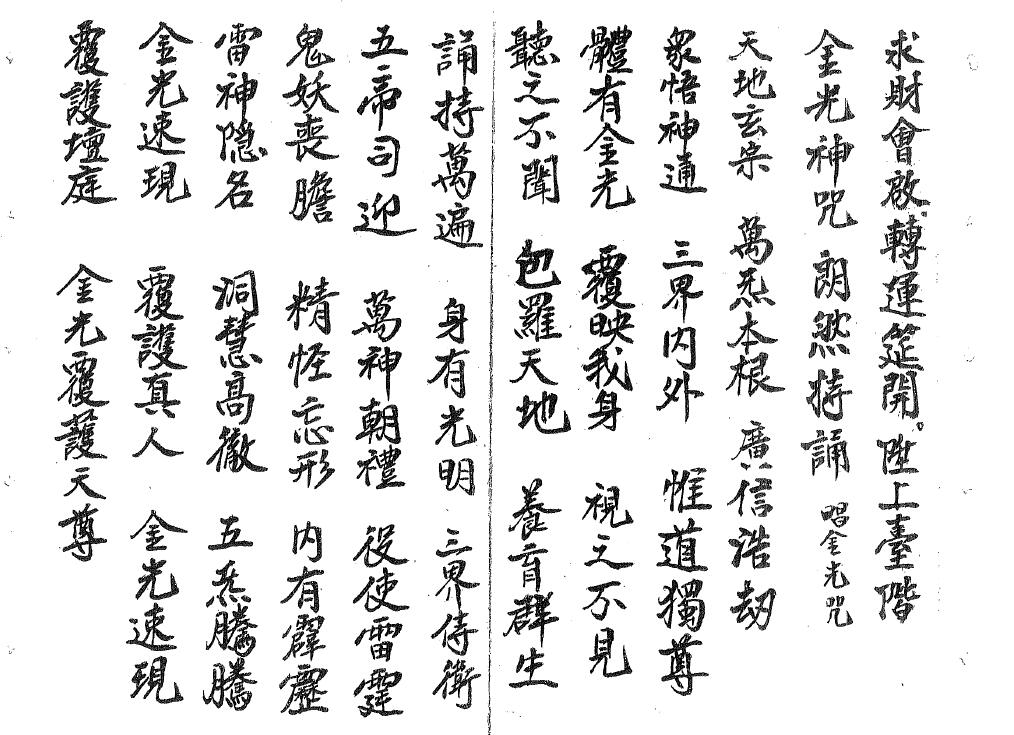 求財會啟轉運筵開。陞上臺階
金光神咒 朗然持誦 唱金光咒
天地玄宗 萬炁本根 廣信浩劫
衆悟神通 三界内外 惟道獨尊
體有金光 覆映我身 視之不見
聽之不聞 包羅天地 養育群生
誦持萬遍 身有光明 三界侍衛
五帝司迎 萬神朝禮 役使雷霆
鬼妖喪膽 精怪忘形 内有霹靂
雷神隐名 洞慧高徹 五炁騰騰
金光速現 覆護真人 金光速現
覆護壇庭 金光覆護天尊